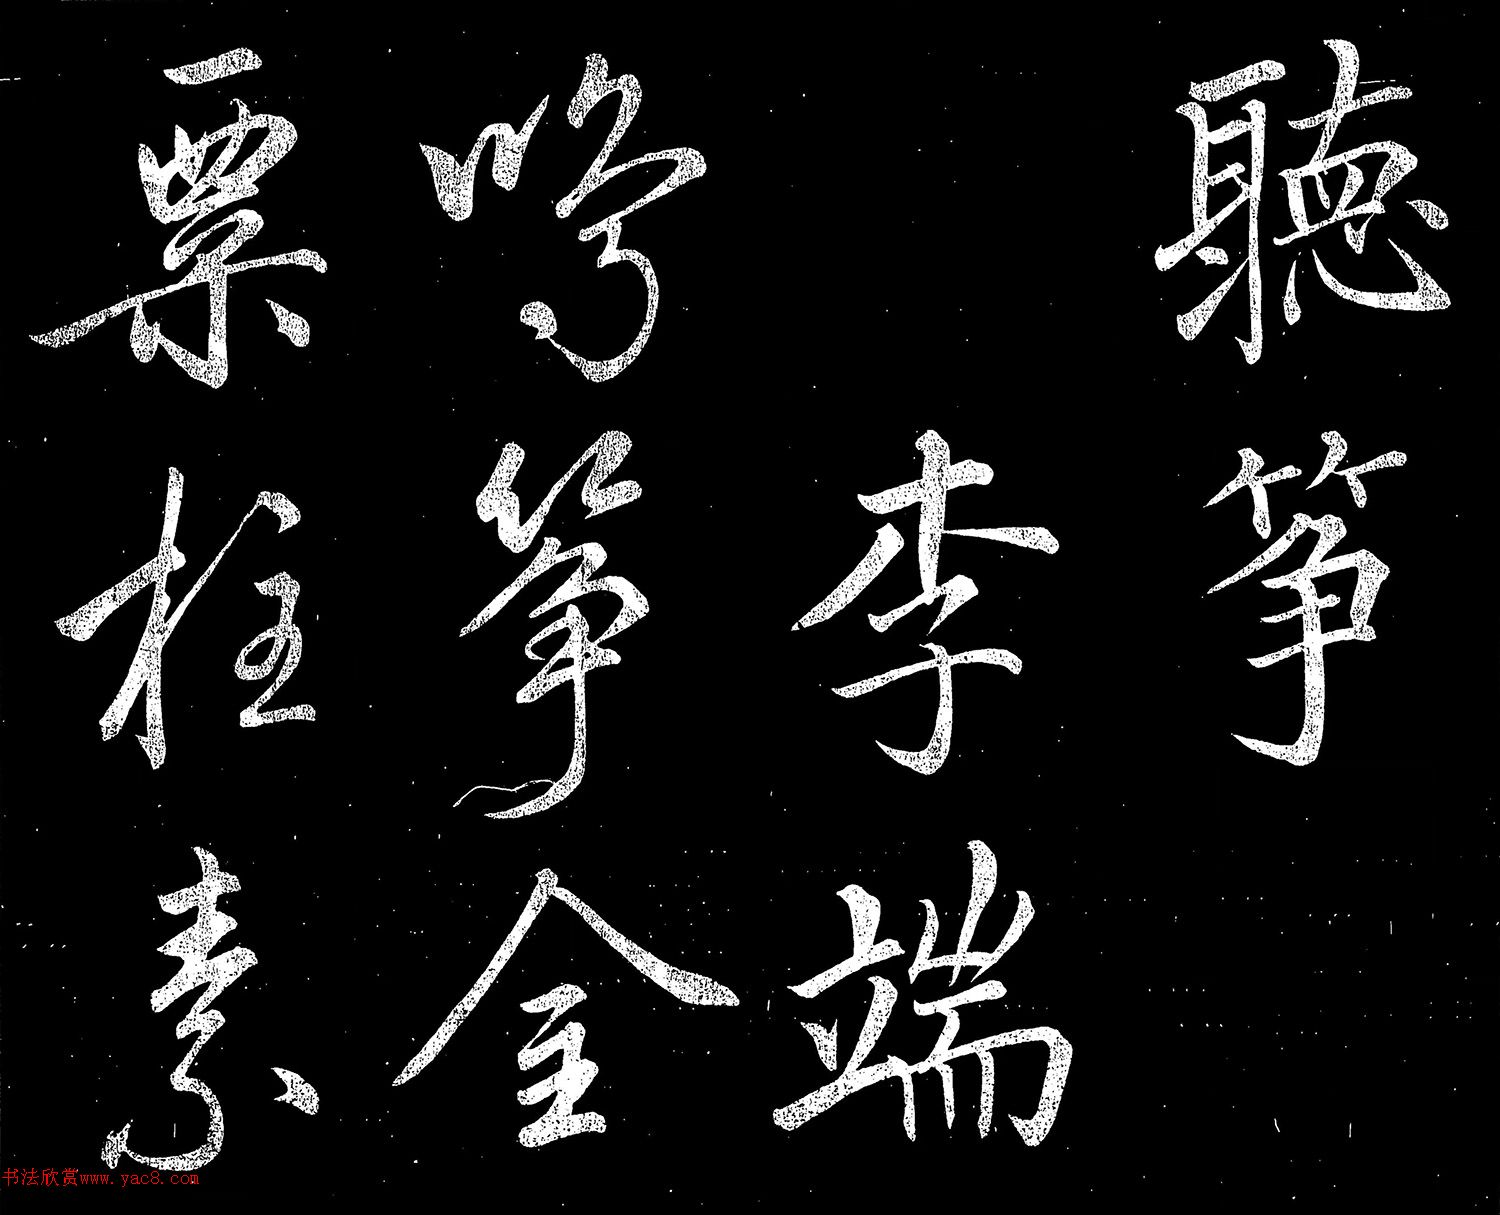 聽箏
李端
鳴箏金
粟柱素
书法欣赏www.yac8.com